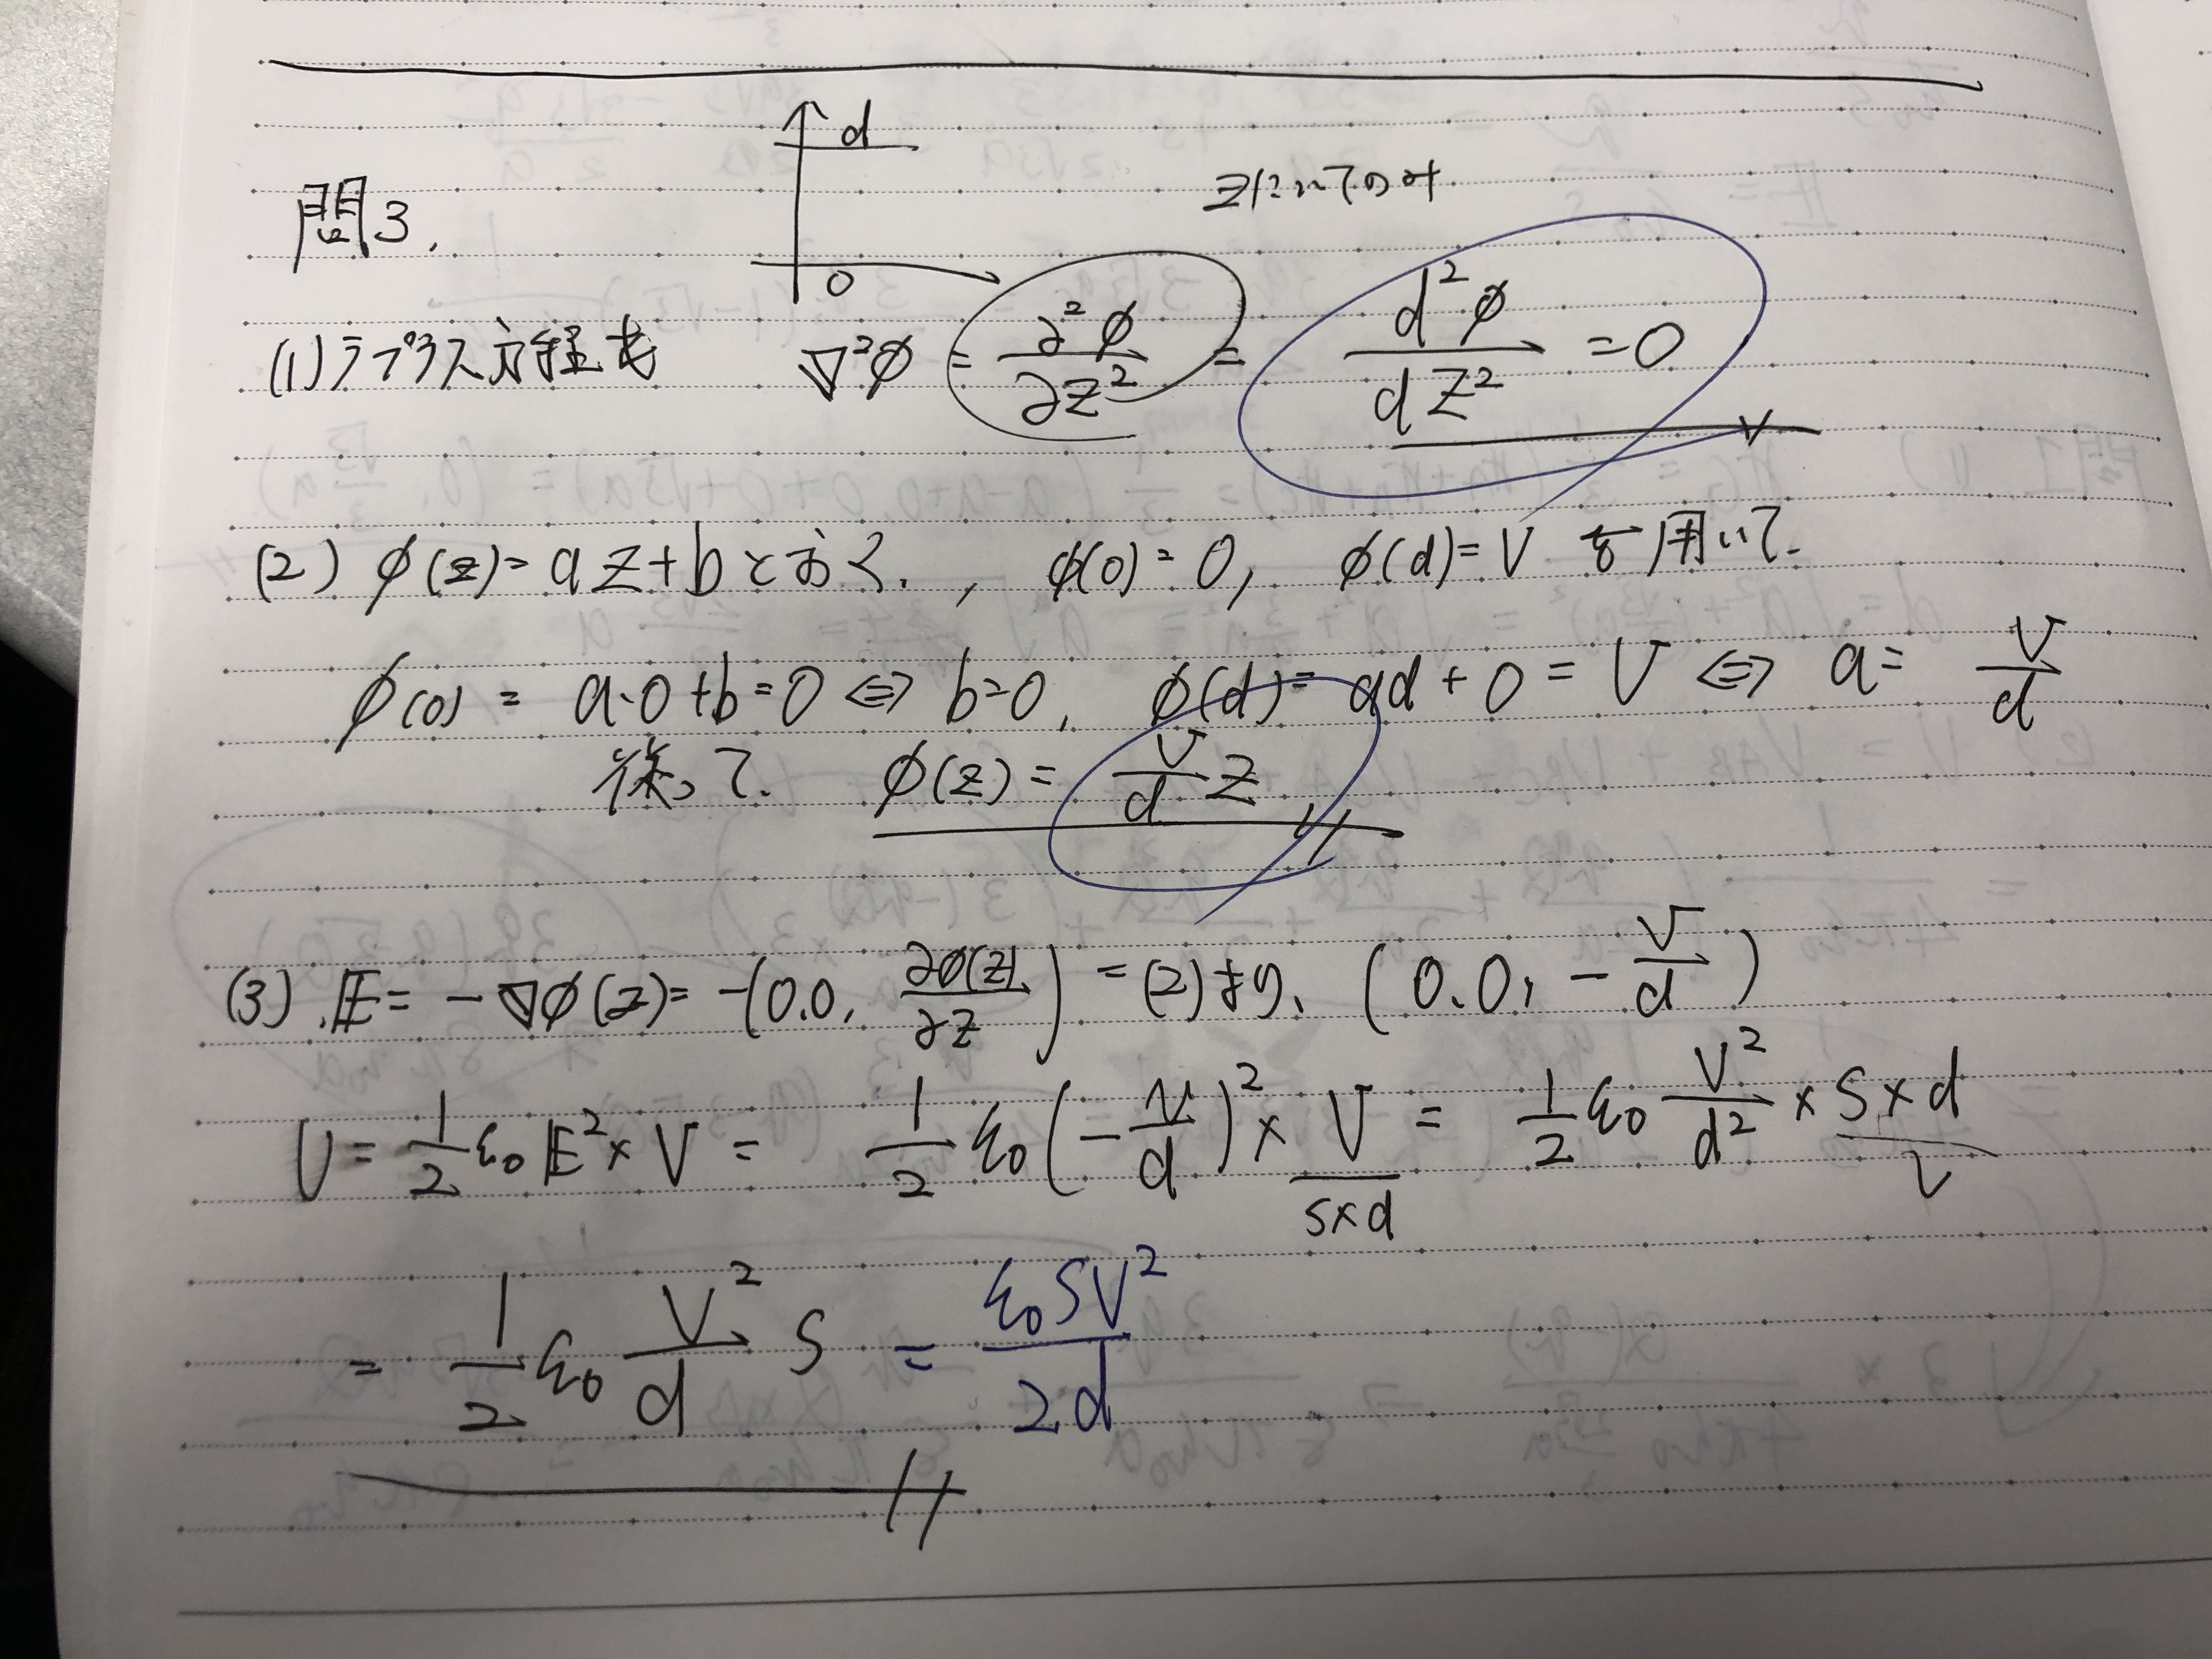 d
zについてのみ
問3.
0
(1) ラプラス方程式 ∇²φ = ∂²φ/∂z² = d²φ/dz² = 0
(2) φ(z) = az+b とおく., φ(0)=0, φ(d)=V を用いて.
φ(0) = a·0+b=0 ⇔ b=0, φ(d)= ad+0 = V ⇔ a= V/d
従って. φ(z) = V/d z
(3). E = -∇φ(z) = -(0.0, ∂φ(z)/∂z) = (2)より、(0.0, -V/d)
U = 1/2 ε₀ E² × V = 1/2 ε₀ (-V/d)² × V = 1/2 ε₀ V²/d² × S×d
S×d
= 1/2 ε₀ V²/d S = ε₀SV²/2d